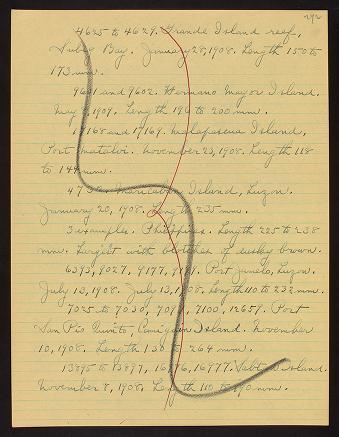 292
4625 to 4629. Grande Island reef,
Subig Bay. January 28, 1908. Length 150 to
173 mm.
9601 and 9602. Hernano Mayor Island.
May 9, 1909. Length 196 to 200 mm.
17168 and 17169. Malapascua Island,
Port Matalvi. November 23, 1908. Length 118
to 144 mm.
4738. Maricaban Island, Luzon.
January 20, 1908. Length 235 mm.
3 examples. Philippines. Length 225 to 238
mm. Largest with blotches of dusky brown.
6393, 9027, 9177, 9181. Port Jamelo, Luzon.
July 13, 1908. July 13, 1908. Length 110 to 232 mm.
7025 to 7030, 7100, 12659. Port
San Pio Quinto, Camiguin Island. November
10, 1908. Length 130 to 264 mm.
13895 to 13897, 16977. Sabtan Island.
November 8, 1908. Length 110 to 190 mm.